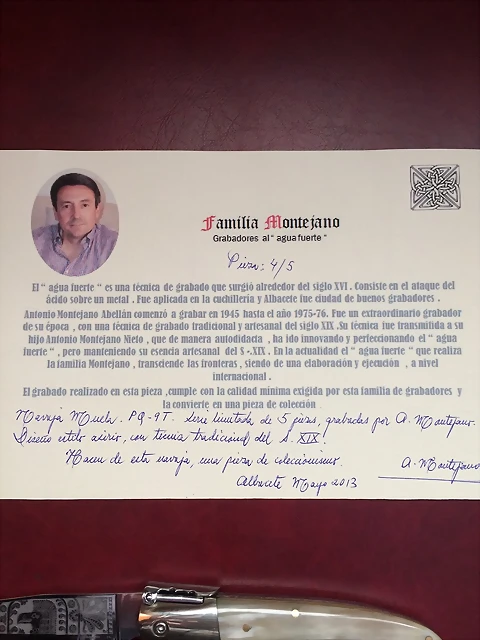 Familia Montejano
Grabadores al " agua fuerte "
Pieza: 4/5
El " agua fuerte " es una técnica de grabado que surgió alrededor del siglo XVI . Consiste en el ataque del
ácido sobre un metal . Fue aplicada en la cuchillería y Albacete fue ciudad de buenos grabadores .
Antonio Montejano Abellán comenzó a grabar en 1945 hasta el año 1975-76. Fue un extraordinario grabador
de su época , con una técnica de grabado tradicional y artesanal del siglo XIX .Su técnica fue transmitida a su
hijo Antonio Montejano Nieto , que de manera autodidacta , ha ido innovando y perfeccionando el " agua
fuerte " , pero manteniendo su esencia artesanal del S -.XIX . En la actualidad el " agua fuerte " que realiza
la familia Montejano , transciende las fronteras , siendo de una elaboración y ejecución , a nivel
internacional .
El grabado realizado en esta pieza ,cumple con la calidad mínima exigida por esta familia de grabadores y
la convierte en una pieza de colección .
Navaja Muela. PQ-9T. serie limitada de 5 piezas, grabadas por A. Montejano.
Diseño estilo asirio, con técnica tradicional del S. XIX.
Hacen de esta navaja, una pieza de coleccionismo.
A. Montejano
Albacete Mayo 2013